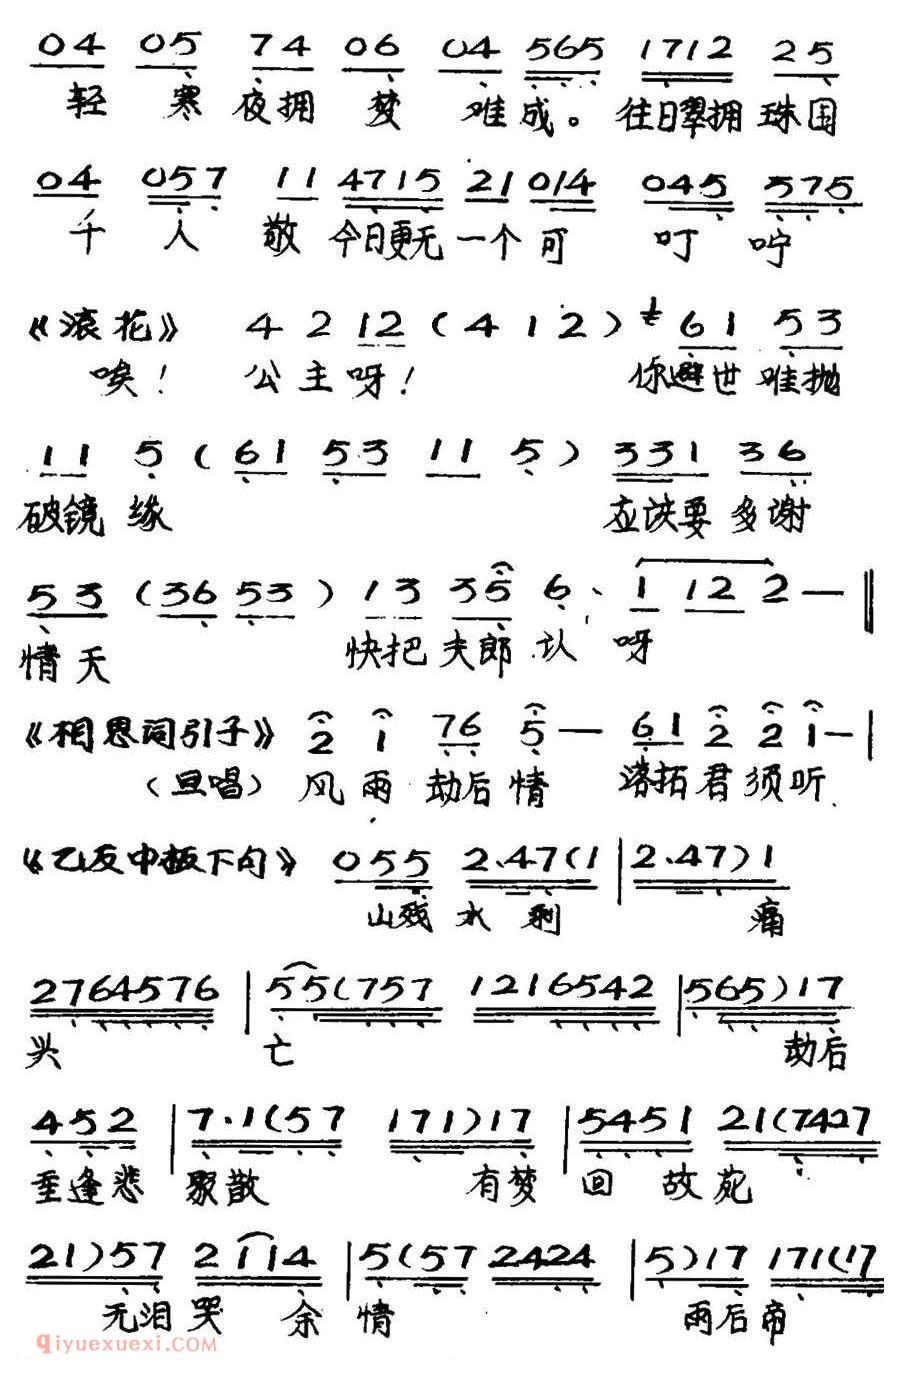 04 05 74 06 04 565 1712 25
轻 寒 夜拥 梦 难 成。 往日翠拥 珠围
04 057 11 4715 21 014 045 575
千 人 敬 今日更无 一个 可 叮 咛
《滚花》 4 2 12 (4 1 2) サ 61 53
唉! 公主呀! 你避世 难抛
11 5 (61 53 11 5) 331 36
破镜 缘 应该要 多谢
53 (36 53) 13 35 6. 1 12 2 — ‖
情天 快把 夫郎 认 呀
《相思词引子》 2 1 76 5 — 61 2 2 1 — |
(旦唱) 风 雨 劫后 情 落拓 君 须 听
《乙反中板下句》 055 2.47(1 | 2.47)1
山残 水 剩 痛
2764576 | 55(757 1216542 | 565)17
头 亡 劫后
452 | 7.1(57 171)17 | 5451 21(7427
重逢悲 聚散 有梦 回 故苑
21)57 2114 | 5(57 2424 | 5)17 171(17
无泪 哭 余 情 雨后 帝
qiyuexuexi.com